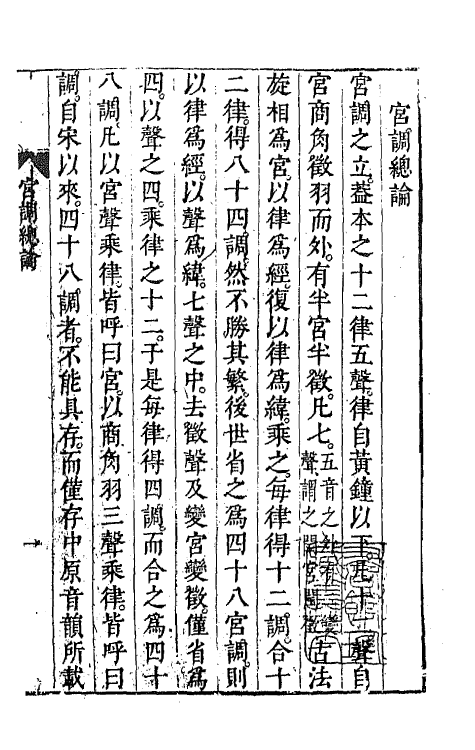 宮調總論
宮調之立。葢本之十二律五聲。律自黃鐘以下凡十二聲自
宮商角徵羽而外。有半宮半徵。凡七。五音之外有二變聲謂之閏宮閏徵古法
旋相爲宮。以律爲經。復以律爲緯。乘之。每律得十二調。合十
二律。得八十四調。然不勝其繁。後世省之爲四十八宮調。則
以律爲經。以聲爲緯。七聲之中。去徵聲及變宮變徵。僅省爲
四。以聲之四。乘律之十二。于是每律得四調。而合之爲四十
八調。凡以宮聲乘律。皆呼曰宮。以商角羽三聲乘律。皆呼曰
調。自宋以來。四十八調者。不能具存。而僅存中原音韻所載
宮調總論
一